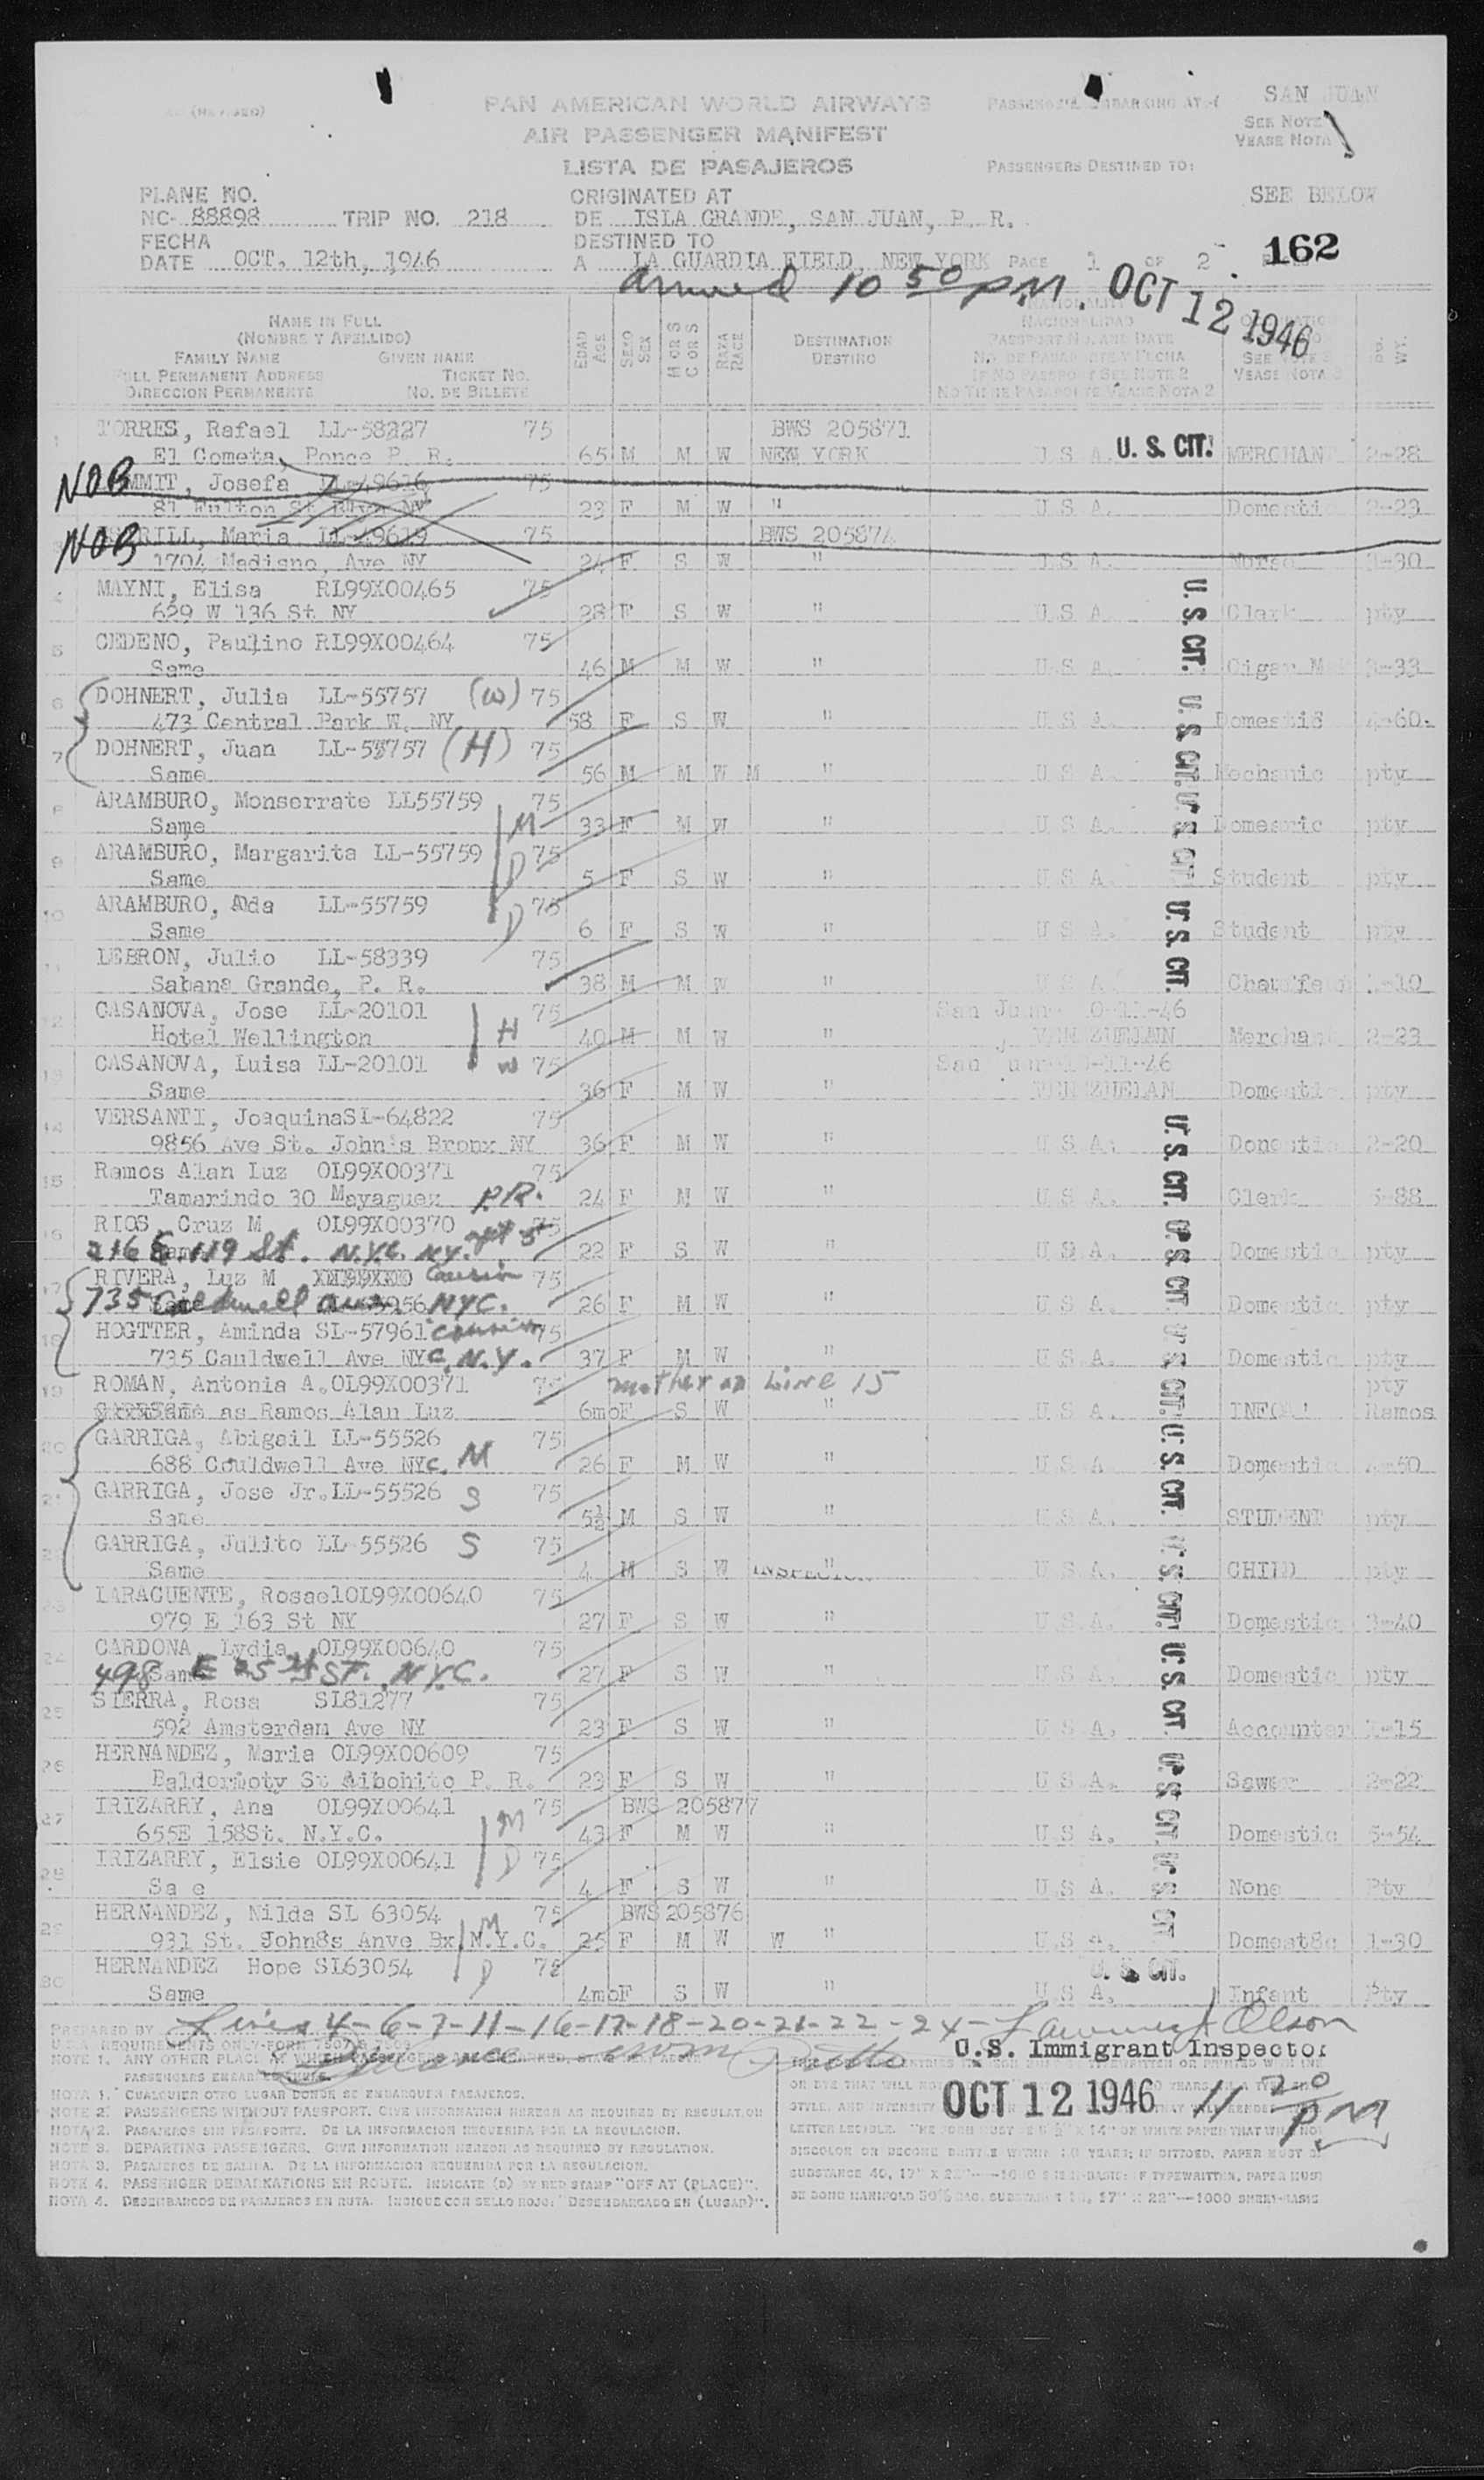 (REVISED)
PAN AMERICAN WORLD AIRWAYS
AIR PASSENGER MANIFEST
LISTA DE PASAJEROS
PASSENGERS EMBARKING AT: SAN JUAN
SEE NOTE
VEASE NOTA
PASSENGERS DESTINED TO:
SEE BELOW
PLANE NO.
NC- 88898 TRIP NO. 218
FECHA
DATE OCT. 12th, 1946
ORIGINATED AT
DE ISLA GRANDE, SAN JUAN, P. R.
DESTINED TO
A LA GUARDIA FIELD, NEW YORK PAGE 1 OF 2
162
arrived 10 50 PM. OCT 12 1946
NAME IN FULL
(NOMBRE Y APELLIDO)
FAMILY NAME GIVEN NAME
FULL PERMANENT ADDRESS TICKET NO.
DIRECCION PERMANENTE NO. DE BILLETE
EDAD AGE
SEXO SEX
M OR S C OR S
RAZA RACE
DESTINATION
DESTINO
NACIONALIDAD
PASSPORT NO. AND DATE
NO. DE PASAPORTE Y FECHA
IF NO PASSPORT SEE NOTE 2
NO TIENE PASAPORTE VEASE NOTA 2
SEE NOTE 3
VEASE NOTA 3
WT.
1 TORRES, Rafael LL-58227 75 BWS 205871
El Cometa, Ponce P. R. 65 M M W NEW YORK U S A. U. S. CIT. MERCHANT 2-28
NOB MMIT, Josefa LL-49616 75
81 Fulton St NY 23 F M W " U S A. Domestic 2-23
NOB RILL, Maria LL-49619 75 BWS 205874
1704 Madisno, Ave NY 24 F S W " U S A. Nurse -30
4 MAYNI, Elisa RL99X00465 75
629 W 136 St NY 28 F S W " U S A. U. S. CIT. Clark pty
5 CEDENO, Paulino RL99X00464 75
Same 46 M M W " U S A. Cigar M -33
6 DOHNERT, Julia LL-55757 (W) 75
473 Central Park W. NY 58 F S W " U S A. U. S. CIT. Domestic 4-60.
7 DOHNERT, Juan LL-55757 (H) 75
Same 56 M M W M " U S A. Mechanic pty
8 ARAMBURO, Monserrate LL55759 75
Same M 33 F M W " U S A. U. S. CIT. Domesric pty
9 ARAMBURO, Margarita LL-55759 75
Same D 5 F S W " U S A. Student pty
10 ARAMBURO, Alda LL-55759 75
Same D 6 F S W " U S A. U. S. CIT. Student pty
11 LEBRON, Julio LL-58339 75
Sabana Grande, P. R. 38 M M W " U S A. Chauffeur -10
12 CASANOVA, Jose LL-20101 75 San Juan 10-11-46
Hotel Wellington H 40 M M W " VENEZUELAN Merchant 2-23
13 CASANOVA, Luisa LL-20101 W 75 San Juan 10-11-46
Same 36 F M W " VENEZUELAN Domestic pty
14 VERSANTI, JoaquinaSL-64822 75
9856 Ave St. John's Bronx NY 36 F M W " U S A. U. S. CIT. Domestic 2-20
15 Ramos Alan Luz OL99X00371 75
Tamarindo 30 Mayaguez P.R. 24 F N W " U S A. Clerk -88
16 RIOS, Cruz M OL99X00370 75
216 E. 119 St. N.Y.C. N.Y. 22 F S W " U S A. U. S. CIT. Domestic pty
17 RIVERA, Luz M Cousin 75
735 Cauldwell Ave. NYC. 26 F M W " U S A. Domestic pty
18 HOGTTER, Aminda SL-57961 cousin 75
735 Cauldwell Ave NYC N.Y. 37 F M W " U S A. U. S. CIT. Domestic pty
19 ROMAN, Antonia A. OL99X00371 75 mother on Line 15 pty
Same as Ramos Alan Luz 6moF S W " U S A. INFQA! Ramos
20 GARRIGA, Abigail LL-55526 75
688 Couldwell Ave NYC. M 26 F M W " U S A U. S. CIT. Domestic -50
21 GARRIGA, Jose Jr. LL-55526 S 75
Same 5½ M S W U S A. STUDENT pty
22 GARRIGA, Julito LL-55526 S 75
Same 4 M S W " U S A. U. S. CIT. CHILD pty
23 LARACUENTE, RosaelOL99X00640 75
979 E 163 St NY 27 F S W " U S A. Domestic 3-40
24 CARDONA, Lydia, OL99X00640 75
498 E 25 ST. N.Y.C. 27 F S W " U S A. U. S. CIT. Domestic pty
25 SIERRA, Rosa SL81277 75
592 Amsterdam Ave NY 23 F S W " U S A. Accountan -15
26 HERNANDEZ, Maria OL99X00609 75
Baldorioty St Aibonito P. R. 23 F S W " U S A. U. S. CIT. Sawer 2-22
27 IRIZARRY, Ana OL99X00641 75 BWS 205877
655E 158St. N.Y.C. M 43 F M W " U S A. Domestic 5-54
28 IRIZARRY, Elsie OL99X00641 D 75
Sa e 4 F S W " U S A. U. S. CIT. None Pty
29 HERNANDEZ, Nilda SL 63054 M 75 BWS 205876
931 St. John8s Anve Bx N.Y.C. 25 F M W W " U S A. Domest8c 1-30
30 HERNANDEZ Hope SL63054 D 75 U. S. CIT.
Same 4moF S W " U S A. Infant Pty
PREPARED BY Lines 4-6-7-11-16-17-18-20-21-22-24- Olson
U.S. Immigrant Inspector
OCT 12 1946 11 20 PM
NOTE 1. ANY OTHER PLACE AT WHICH PASSENGERS ARE
PASSENGERS EMBARKED
NOTA 1. CUALQUIER OTRO LUGAR DONDE SE EMBARQUEN PASAJEROS.
NOTE 2. PASSENGERS WITHOUT PASSPORT. GIVE INFORMATION HEREON AS REQUIRED BY REGULATION
NOTA 2. PASAJEROS SIN PASAPORTE. DE LA INFORMACION REQUERIDA POR LA REGULACION.
NOTE 3. DEPARTING PASSENGERS. GIVE INFORMATION HEREON AS REQUIRED BY REGULATION.
NOTA 3. PASAJEROS DE SALIDA. DE LA INFORMACION REQUERIDA POR LA REGULACION.
NOTE 4. PASSENGER DEBARKATIONS EN ROUTE. INDICATE (D) BY RED STAMP "OFF AT (PLACE)".
NOTA 4. DESEMBARCOS DE PASAJEROS EN RUTA. INDIQUE CON SELLO ROJO: "DESEMBARCADO EN (LUGAR)".
LETTER LEGIBLE. THE FORM MUST BE 8½ X 14" ON WHITE PAPER THAT WILL NOT
DISCOLOR OR BECOME BRITTLE WITHIN YEARS; IF DITTOED, PAPER MUST
SUBSTANCE 40, 17" X 22"—1000 SHEET-BASIS; IF TYPEWRITTEN, PAPER MUST
BE BOND MANIFOLD 50% RAG, SUBSTANCE 17" X 22"—1000 SHEET-BASIS